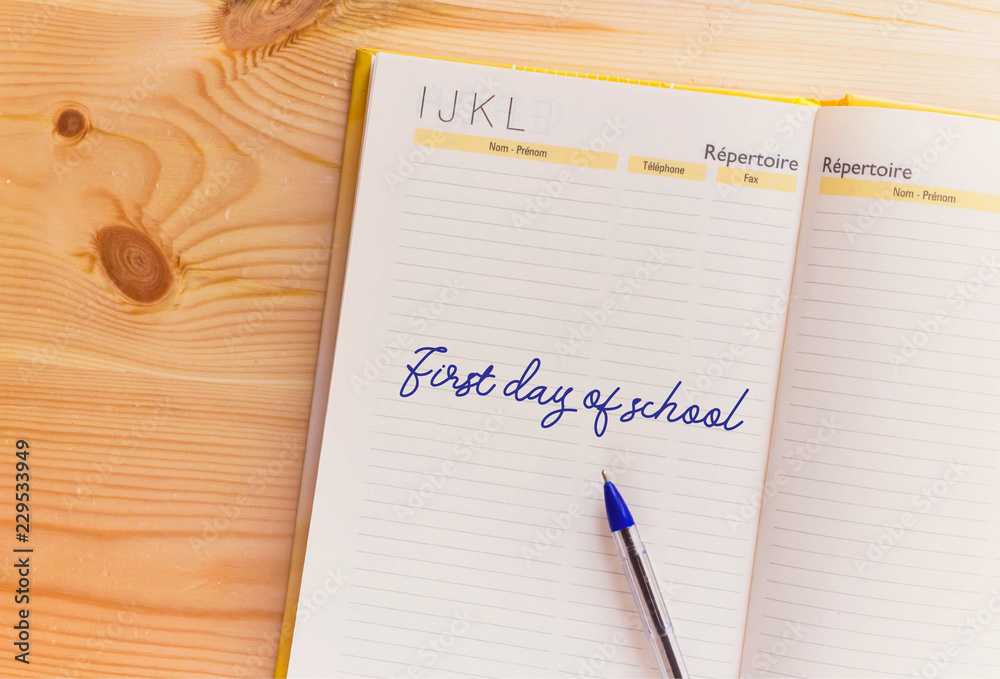 IJKL
Nom - Prénom
Téléphone
Répertoire
Fax
Répertoire
Nom - Prénom
First day of school
Adobe Stock | #229533949